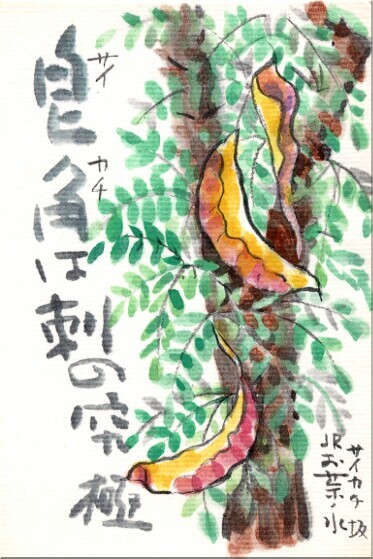 皀角は刺の究極
サイ
カチ
サイカチ坂
JRお茶ノ水